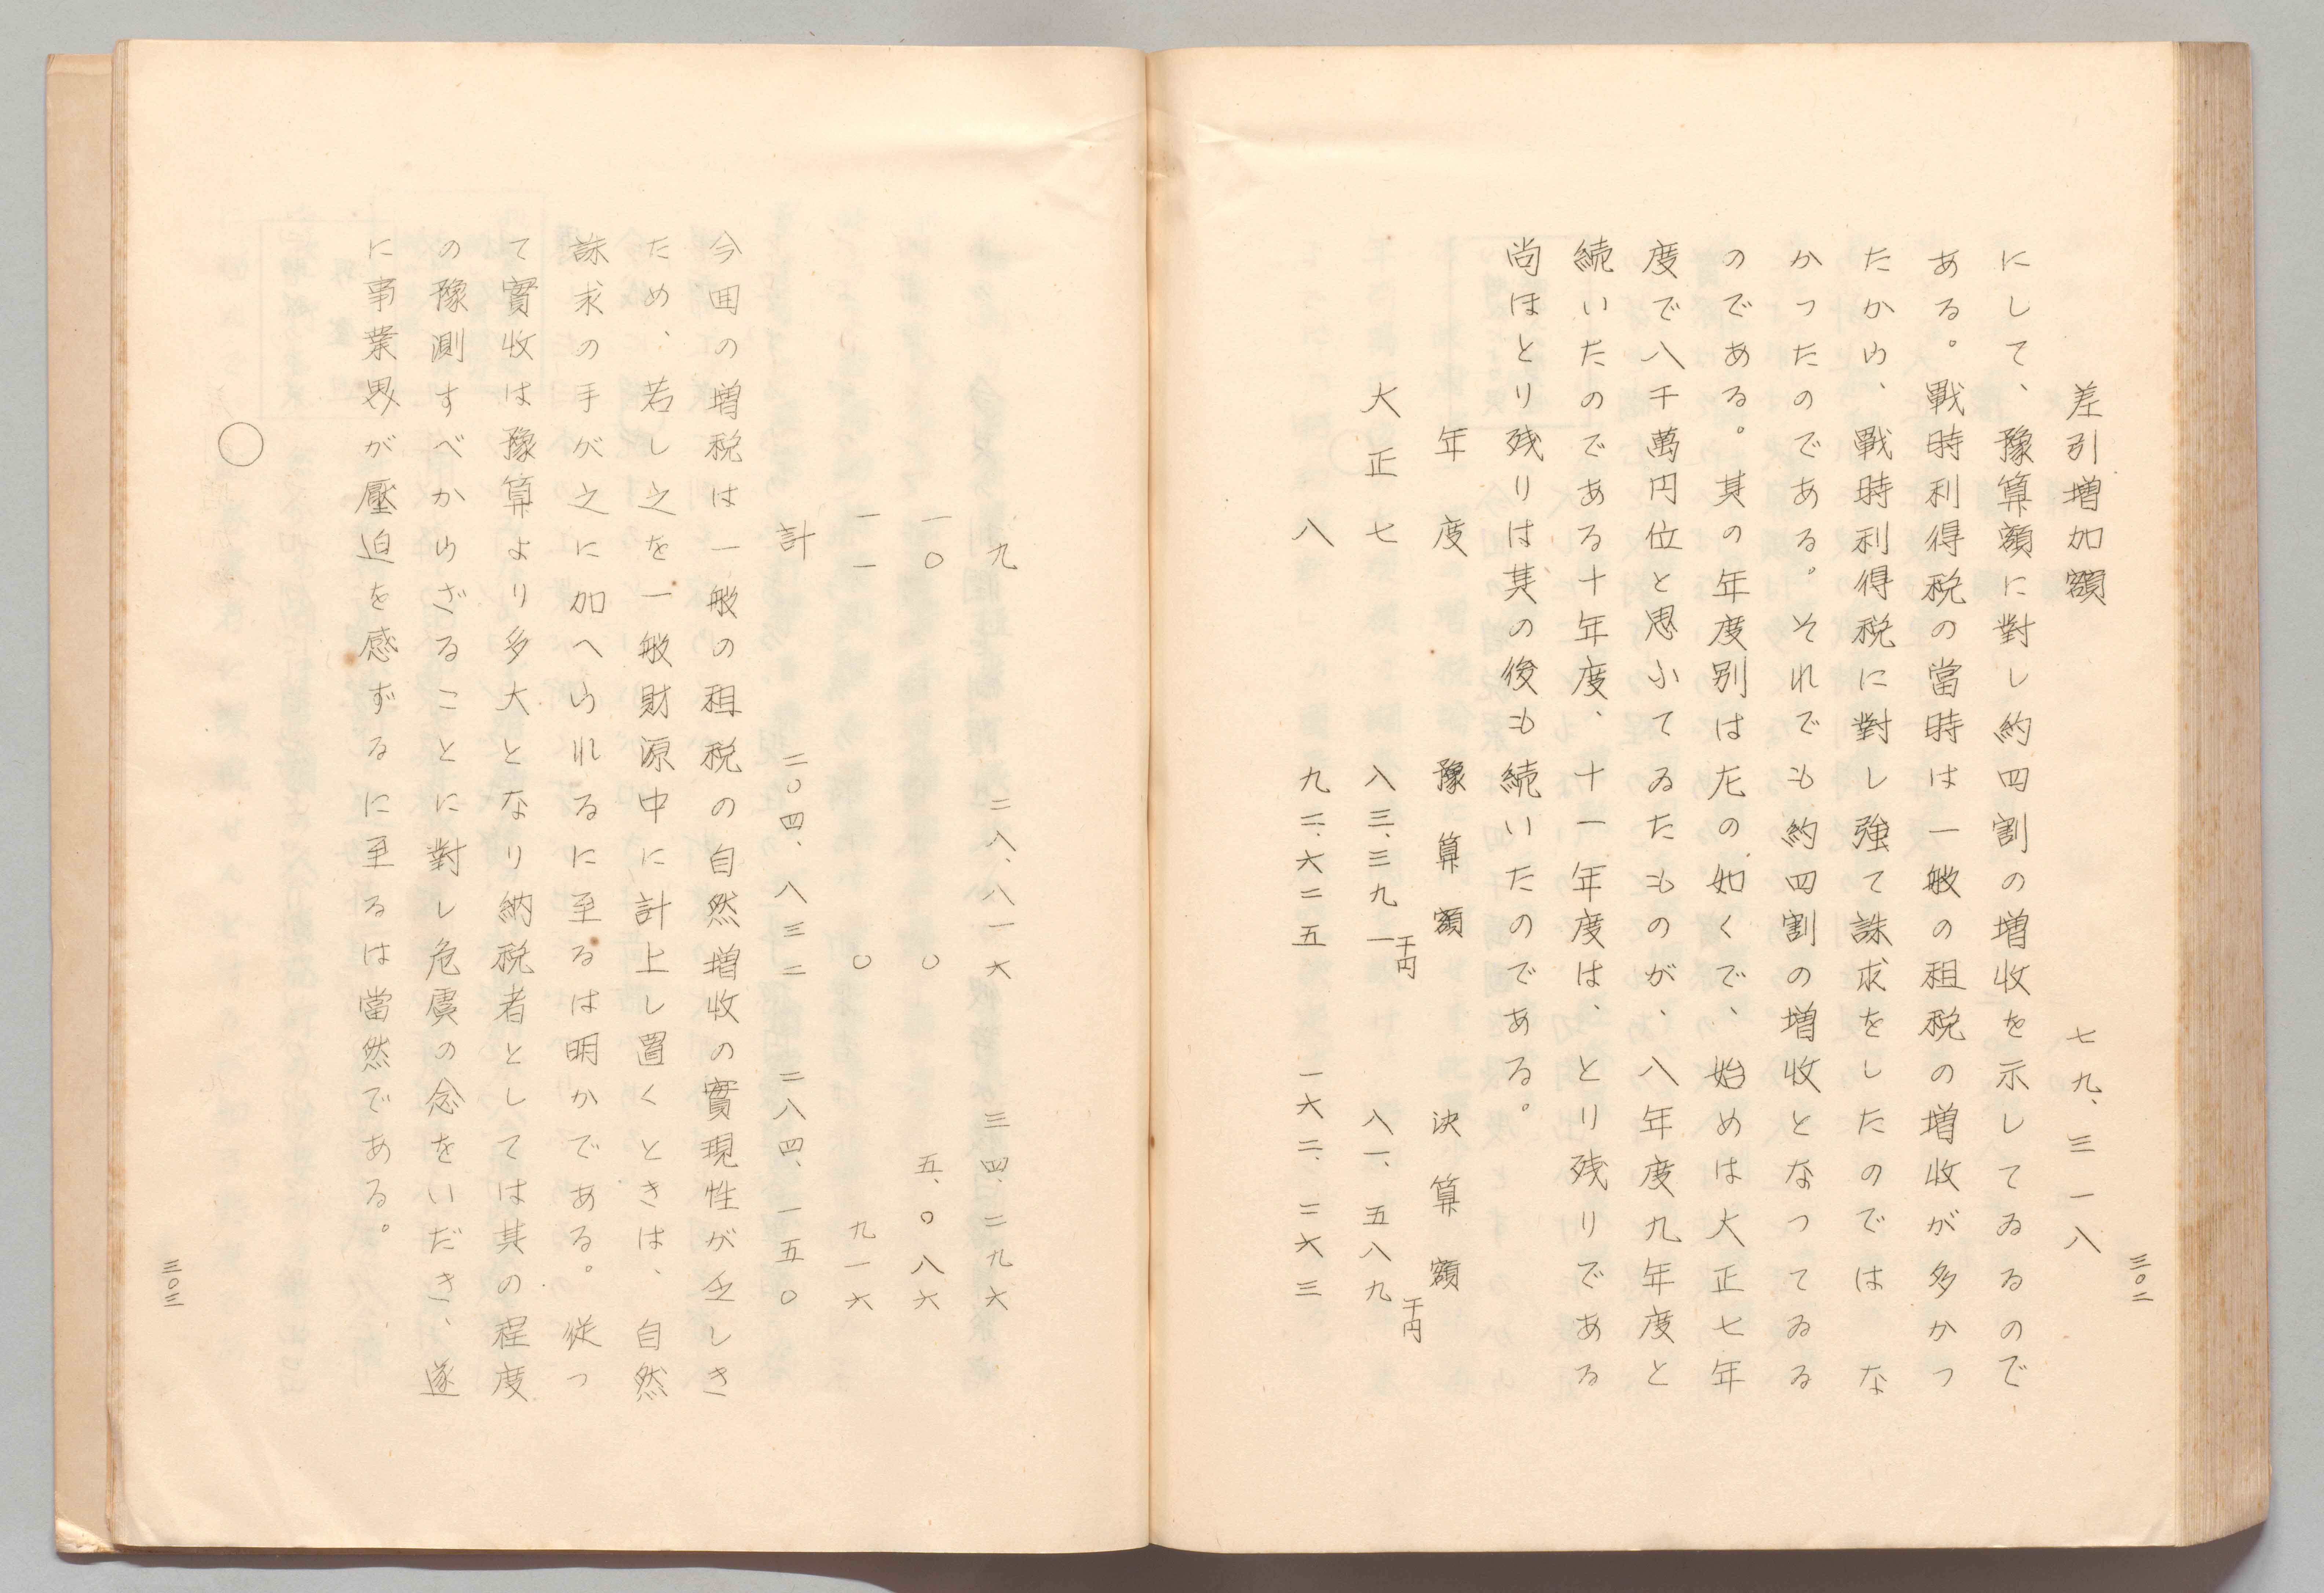 差引増加額　七九、三一八
にして、豫算額に對し約四割の増收を示してゐるので
ある。戰時利得税の當時は一般の租税の増收が多かつ
たから、戰時利得税に對し強て誅求をしたのではな
かつたのである。それでも約四割の増收となつてゐる
のである。其の年度別は左の如くで、始めは大正七年
度で八千萬円位と思ふてゐたものが、八年度九年度と
続いたのである十年度、十一年度は、とり残りである
尚ほとり残りは其の後も続いたのである。
年度　豫算額　決算額
大正七　八三、三九一千円　八一、五八九千円
八　九二、六二五　一六二、二六三
三〇二
九　二八、八一六　三四、二九六
一〇　〇　五、〇八六
一一　〇　九一六
計　二〇四、八三二　二八四、一五〇
今囬の増税は一般の租税の自然増收の實現性が乏しき
ため、若し之を一般財源中に計上し置くときは、自然
誅求の手が之に加へられるに至るは明かである。従つ
て實收は豫算より多大となり納税者としては其の程度
の豫測すべからざることに對し危虞の念をいだき、遂
に事業界が壓迫を感ずるに至るは當然である。
〇
三〇三